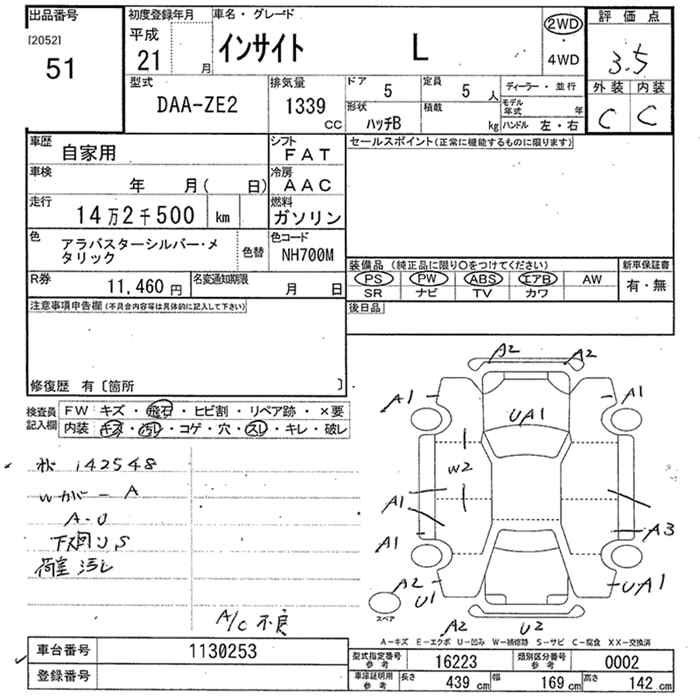 出品番号
[2052]
51
初度登録年月
平成
21 月
車名・グレード
インサイト L
2WD
・
4WD
評価点
3.5
外装 内装
C C
型式
DAA-ZE2
排気量
1339
CC
ドア
5
定員
5 人
形状
ハッチB
積載
kg
ディーラー・並行
モデル年式 年
ハンドル 左・右
車歴
自家用
シフト
FAT
車検
年 月( 日)
冷房
AAC
走行
14万2千500 km
燃料
ガソリン
色
アラバスターシルバー・メタリック
色替
色コード
NH700M
R券
11,460 円
名変通知期限
月 日
セールスポイント(正常に機能するものに限ります)
装備品 (純正品に限り○をつけてください)
PS PW ABS エアB AW
SR ナビ TV カワ
新車保証書
有・無
後日品
注意事項申告欄(不具合内容等は具体的に記入して下さい)
修復歴 有〔箇所 〕
検査員記入欄
FW キズ・飛石・ヒビ割・リペア跡・×要
内装 キズ・汚レ・コゲ・穴・スレ・キレ・破レ
142548
Wカバー A
A-U
下廻りS
荷室汚レ
A/C不良
A2 A2
A1 A1
UA1
W2
A1
A1 A3
A2
U1 UA1
スペア
A2 U2
A-キズ E-エクボ U-凹み W-補修跡 S-サビ C-腐食 XX-交換済
車台番号
1130253
登録番号
型式指定番号
参考
16223
類別区分番号
参考
0002
車庫証明用
参考
長さ 439 cm
幅 169 cm
高さ 142 cm